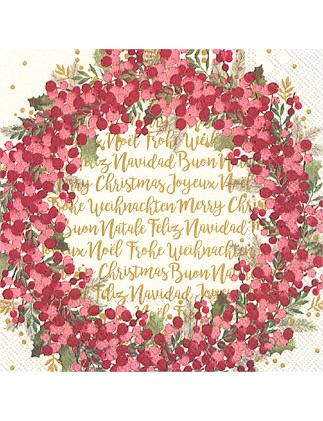 Noël Frohe Weih
Feliz Navidad Buon
rry Christmas Joyeux Noël
Frohe Weihnachten Merry Chris
Buon Natale Feliz Navidad M
ux Noël Frohe Weihnachten
Christmas Buon Nata
Feliz Navidad Joyeu
Noël Fro